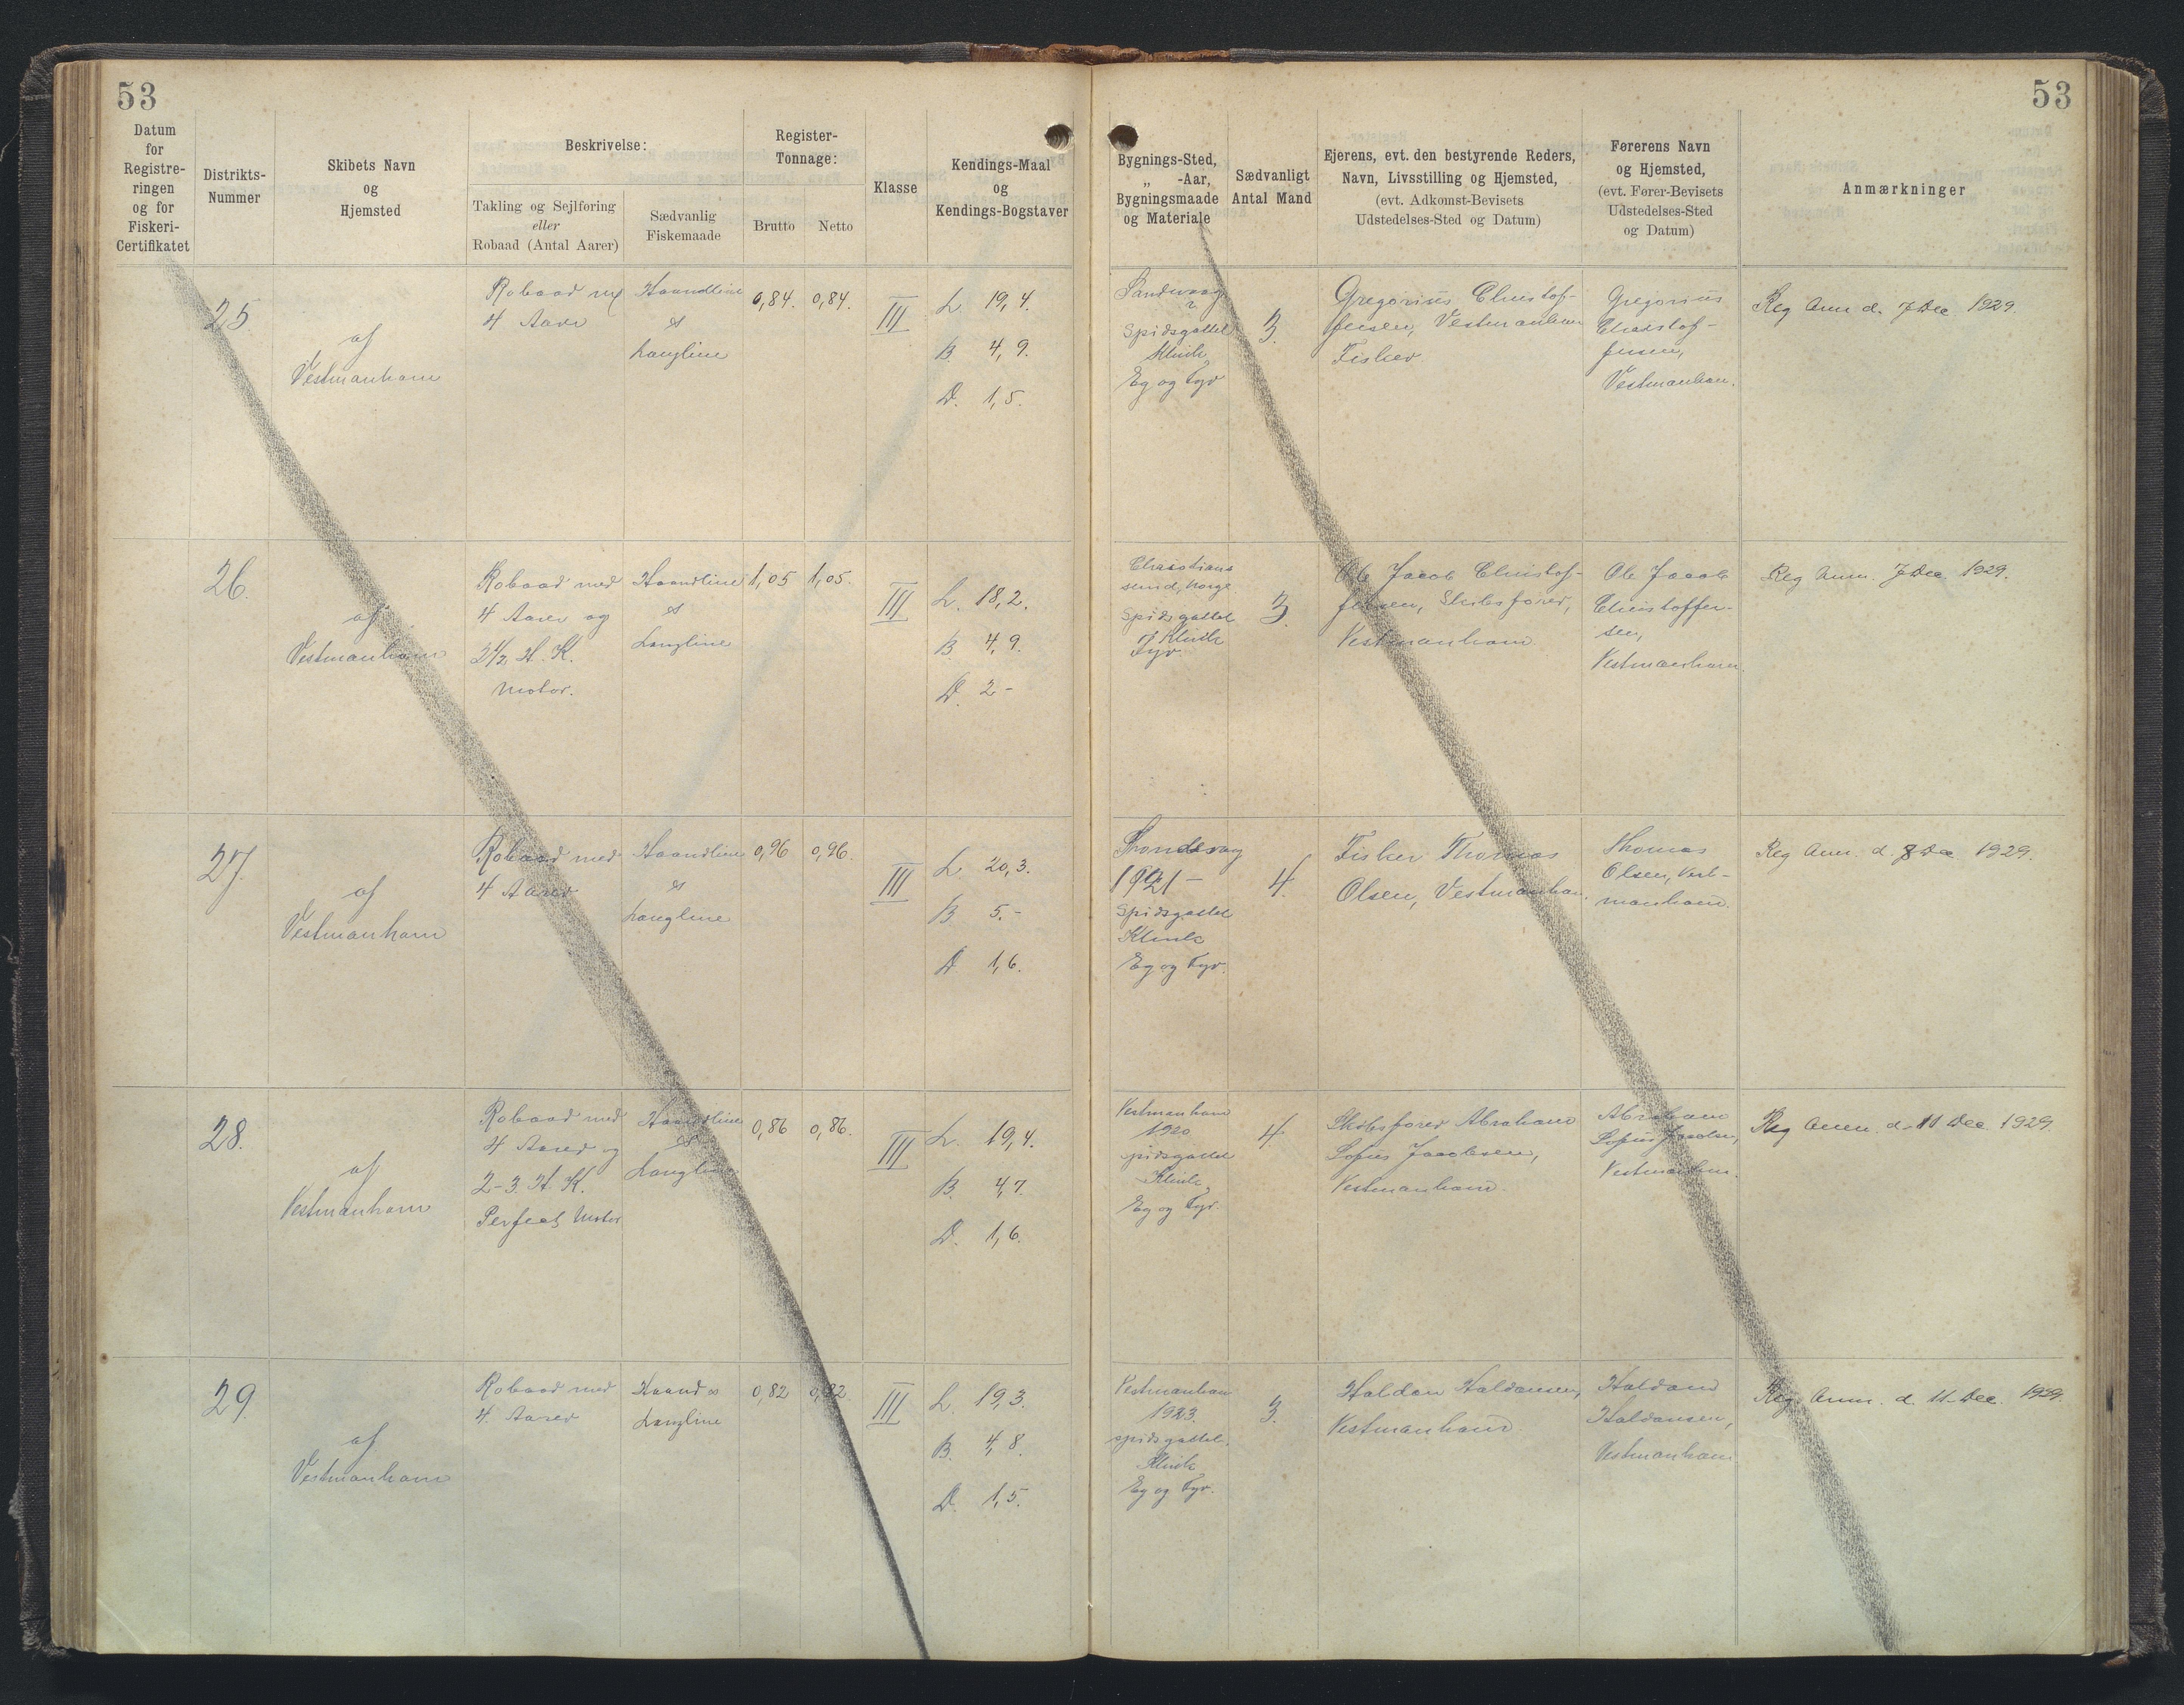 53
53
Datum
for
Registre-
ringen
og for
Fiskeri-
Certifikatet
Distrikts-
Nummer
Skibets Navn
og
Hjemsted
Beskrivelse:
Takling og Sejlføring
eller
Robaad (Antal Aarer)
Sædvanlig
Fiskemaade
Register-
Tonnage:
Brutto
Netto
Klasse
Kendings-Maal
og
Kendings-Bogstaver
Bygnings-Sted,
„ -Aar,
Bygningsmaade
og Materiale
Sædvanligt
Antal Mand
Ejerens, evt. den bestyrende Reders,
Navn, Livsstilling og Hjemsted,
(evt. Adkomst-Bevisets
Udstedelses-Sted og Datum)
Førerens Navn
og Hjemsted,
(evt. Fører-Bevisets
Udstedelses-Sted
og Datum)
Anmærkninger
25
af
Vestmanhavn
Robaad m/
4 Aarer
Haandline
&
Langline
0,84.
0,84.
III
L. 19,4.
B. 4,9.
D. 1,5.
Sandvaag
?
Spidsgattet
Klink
Eg og Fyr
3.
Gregorius Christof-
fersen, Vestmanhavn
Fisker
Gregorius
Christof-
fersen,
Vestmanhavn.
Reg Anm d. 7 Dec 1929.
26.
af
Vestmanhavn
Robaad med
4 Aarer og
2½ H. K.
Motor.
Haandline
&
Langline
1,05
1,05.
III
L. 18,2.
B. 4,9.
D. 2 -
Christians
sund, Norge
Spidsgattet
Klink
Fyr
3.
Ole Jacob Christof-
fersen, Skibsfører,
Vestmanhavn.
Ole Jacob
Christoffer-
sen,
Vestmanhavn
Reg Anm. 7 Dec. 1929.
27.
af
Vestmanhavn
Robaad med
4 Aarer
Haandline
&
Langline
0,96
0,96.
III
L. 20,3.
B. 5.-
D. 1,6.
1921 -
Spidsgattet
Klink
Eg og Fyr.
4.
Fisker Thomas
Olsen, Vestmanhavn.
Thomas
Olsen, Vest-
manhavn.
Reg Anm. d. 8 Dec 1929.
28.
af
Vestmanhavn
Robaad med
4 Aarer og
2-3. H. K.
Perfect Motor
Haandline
&
Langline
0,86
0,86.
III
L. 19,4.
B. 4,7.
D. 1,6.
Vestmanhavn
1920
spidsgattet
Klink,
Eg og Fyr.
4.
Skibsfører Abraham
Sofus Jacobsen,
Vestmanhavn.
Abraham
Sofus Jacobsen,
Vestmanhavn.
Reg Anm. d. 11 Dec 1929.
29.
af
Vestmanhavn
Robaad med
4 Aarer
Haand &
Langline
0,82
0,82.
III
L. 19,3.
B. 4,8.
D. 1,5.
Vestmanhavn
1923.
spidsgattet.
Klink
Eg og Fyr.
3.
Haldan Haldansen,
Vestmanhavn.
Haldan
Haldansen,
Vestmanhavn
Reg Anm. d. 11 Dec. 1929.